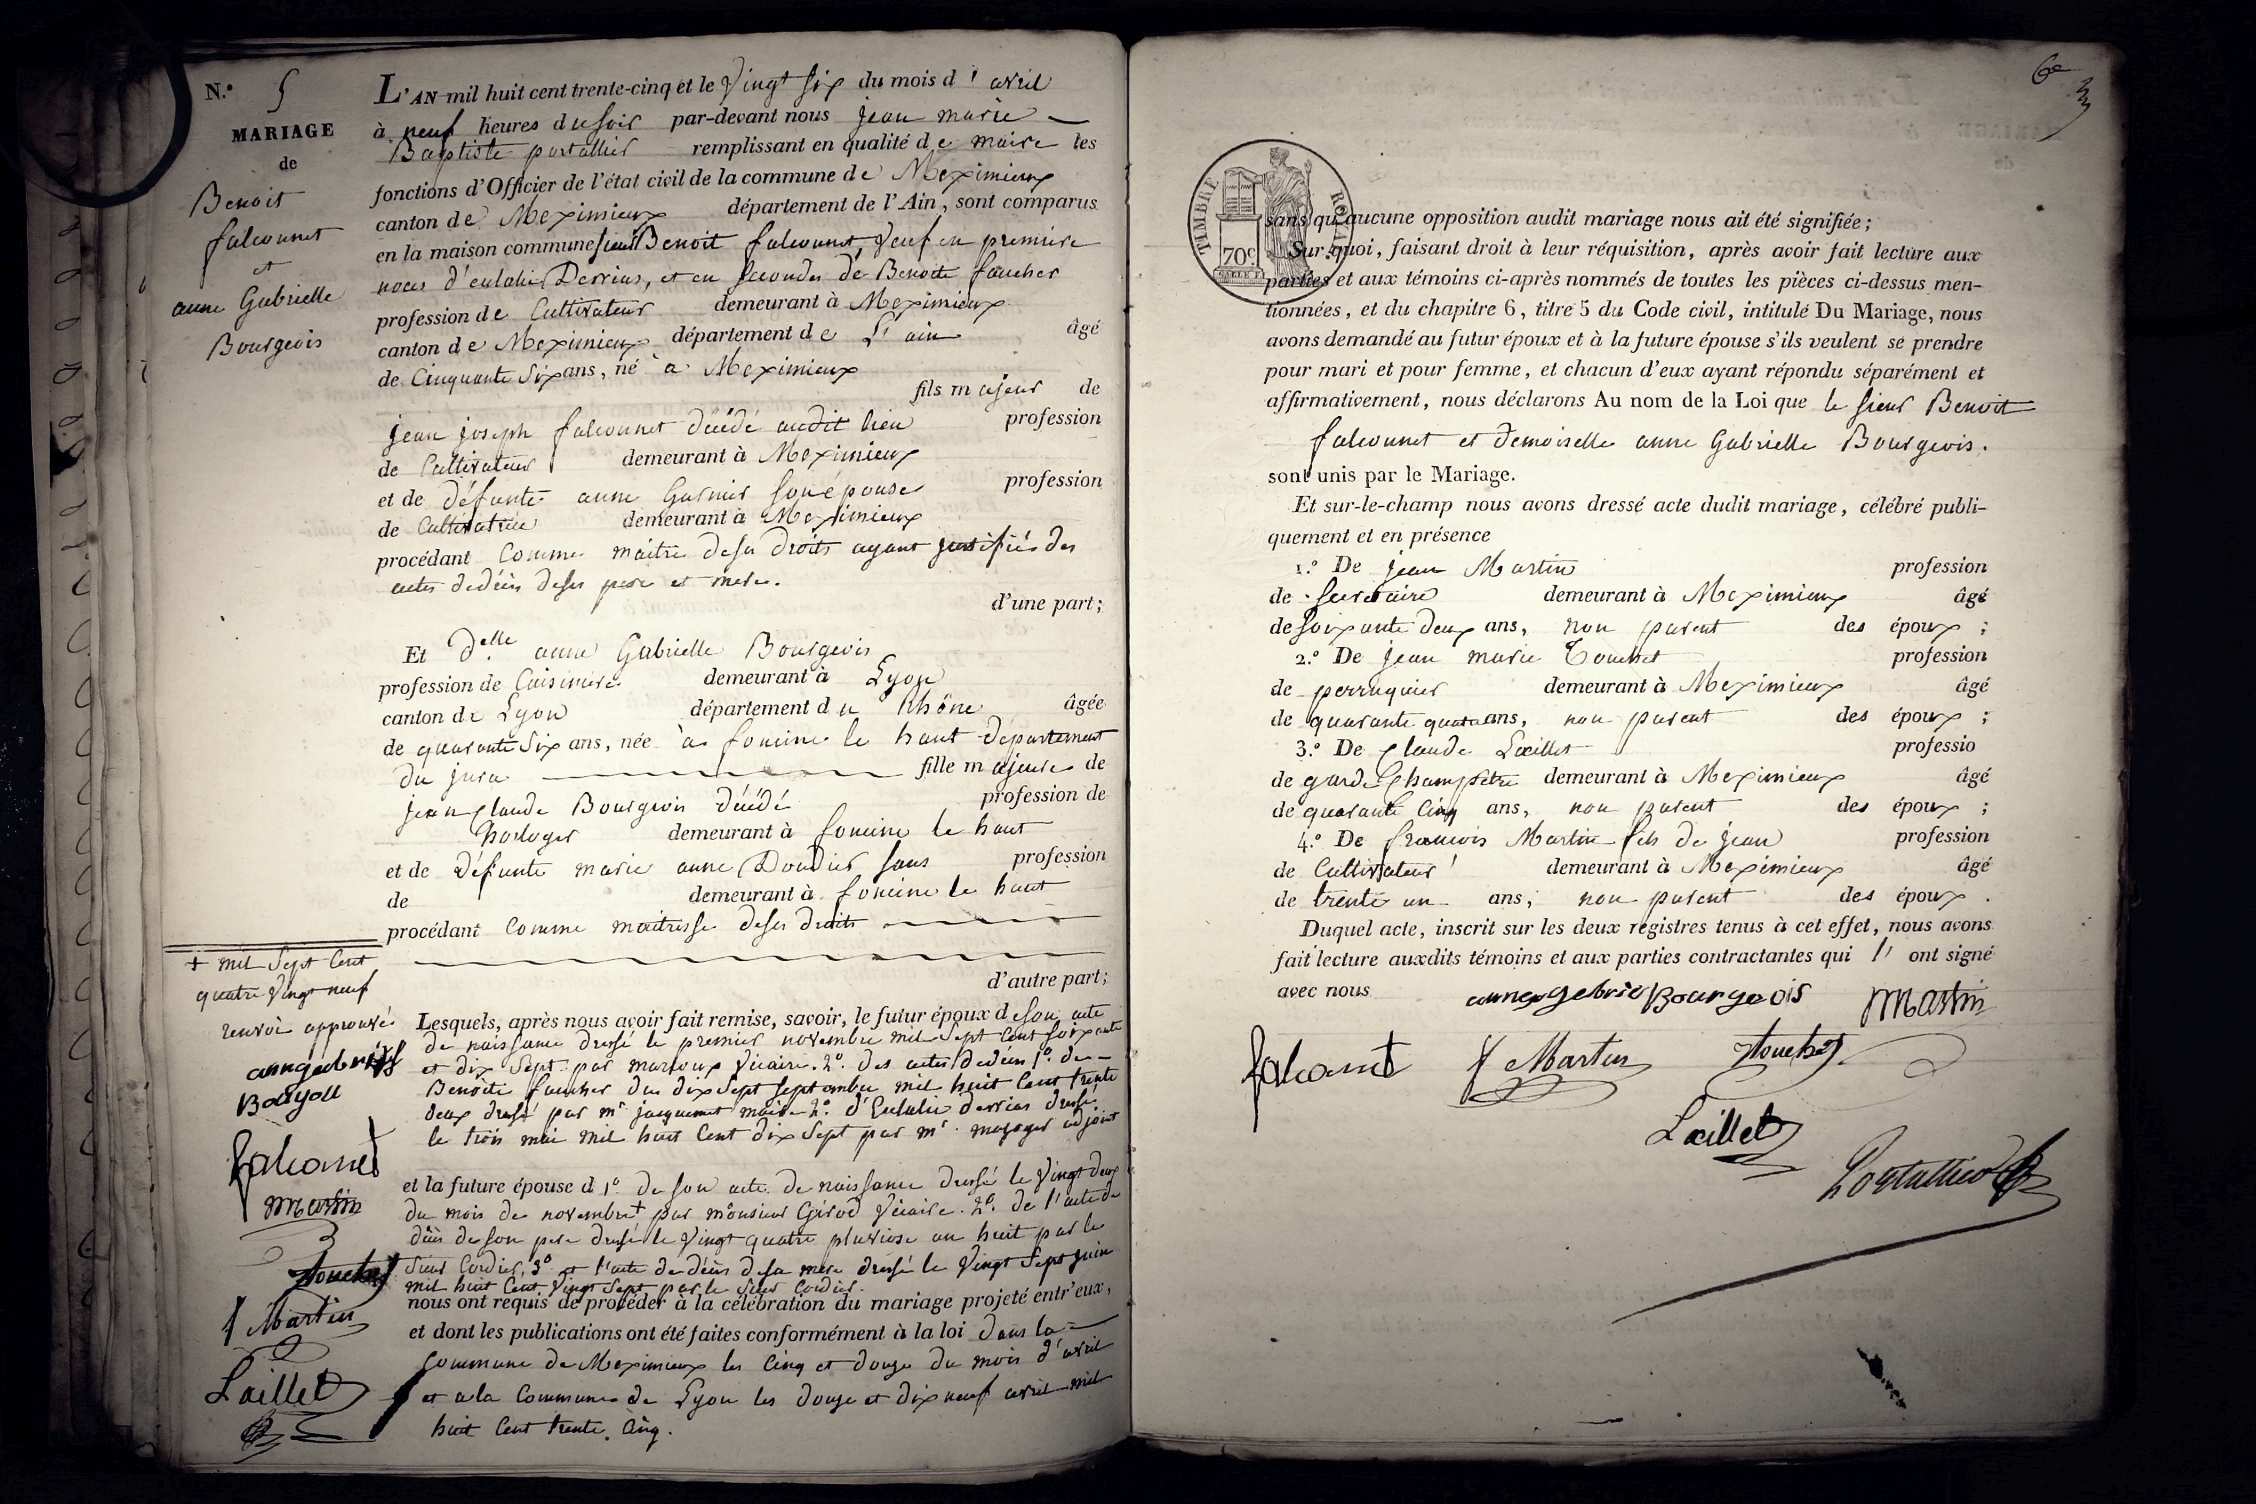 N.º 5
MARIAGE
de
Benoit
falconnet
et
anne Gabrielle
Bourgeois
L'AN mil huit cent trente-cinq et le Vingt six du mois d'avril
à neuf heures du soir par-devant nous jean marie
Baptiste portallier remplissant en qualité de maire les
fonctions d'Officier de l'état civil de la commune de Meximieux
canton de Meximieux département de l'Ain, sont comparus
en la maison commune sieur Benoit falconnet, Veuf en premiere
noces d'eulalie Derrias, et en secondes de Benoite faucher
profession de Cultivateur demeurant à Meximieux
canton de Meximieux département de L'ain âgé
de Cinquante Six ans, né à Meximieux
fils majeur de
jean joseph falconnet décédé audit lieu profession
de Cultivateur demeurant à Meximieux
et de défunte anne Garnier son épouse profession
de Cultivatrice demeurant à Meximieux
procédant Comme maitre de ses droits ayant justifié des
actes de décès de ses pere et mere.
d'une part;
Et d.elle anne Gabrielle Bourgeois
profession de Cuisiniere demeurant à Lyon
canton de Lyon département du Rhône âgée
de quarante Six ans, née à foncine le haut département
du jura fille majeure de
jean Claude Bourgeois décédé profession de
horloger demeurant à foncine le haut
et de défunte marie anne Doudier sans profession
de demeurant à foncine le haut
procédant Comme maitresse de ses droits
d'autre part;
Lesquels, après nous avoir fait remise, savoir, le futur époux de son acte
de naissance dressé le premier novembre mil Sept Cent soixante
et dix Sept par marsoux Vicaire. 2º. des actes de décès 1º. de
Benoite faucher du dix Sept septembre mil huit Cent trente
deux dressé par mr jacquemet maire 2º. d'Eulalie derrias dressé
le trois mai mil huit Cent dix Sept par mr. adjoint
et la future épouse d 1º. de son acte de naissance dressé le Vingt deux
du mois de novembre + par monsieur Girod Vicaire. 2º. de l'acte de
décès de son pere dressé le Vingt quatre pluviose an huit par le
sieur Cordier, 3º et l'acte de décès de sa mere dressé le Vingt Sept juin
mil huit Cent Vingt Sept par le sieur Cordier.
nous ont requis de procéder à la célébration du mariage projeté entr'eux,
et dont les publications ont été faites conformément à la loi dans la
Commune de Meximieux les Cinq et douze du mois d'avril
et a la Commune de Lyon les douze et dix neuf avril mil
huit Cent trente Cinq.
+ mil Sept Cent
quatre Vingt neuf
renvoi approuvé
falconnet
martin
touchet
f Martin
Laillet
6e
TIMBRE ROYAL
70c
sans qu'aucune opposition audit mariage nous ait été signifiée;
Sur quoi, faisant droit à leur réquisition, après avoir fait lecture aux
parties et aux témoins ci-après nommés de toutes les pièces ci-dessus men-
tionnées, et du chapitre 6, titre 5 du Code civil, intitulé Du Mariage, nous
avons demandé au futur époux et à la future épouse s'ils veulent se prendre
pour mari et pour femme, et chacun d'eux ayant répondu séparément et
affirmativement, nous déclarons Au nom de la Loi que le sieur Benoit
falconnet et demoiselle anne Gabrielle Bourgeois.
sont unis par le Mariage.
Et sur-le-champ nous avons dressé acte dudit mariage, célébré publi-
quement et en présence
1.º De jean Martin profession
de Secretaire demeurant à Meximieux âgé
de soixante deux ans, non parent des époux;
2.º De jean marie Touchet profession
de perruquier demeurant à Meximieux âgé
de quarante quatre ans, non parent des époux;
3.º De Claude Laillet professio
de garde Champêtre demeurant à Meximieux âgé
de quarante Cinq ans, non parent des époux;
4.º De francois Martin fils de jean profession
de Cultivateur demeurant à Meximieux âgé
de trente un ans, non parent des époux.
Duquel acte, inscrit sur les deux registres tenus à cet effet, nous avons
fait lecture auxdits témoins et aux parties contractantes qui l'ont signé
avec nous
anne gebriel Bourgeois martin
falconnet f Martin touchet
Laillet
Portallier